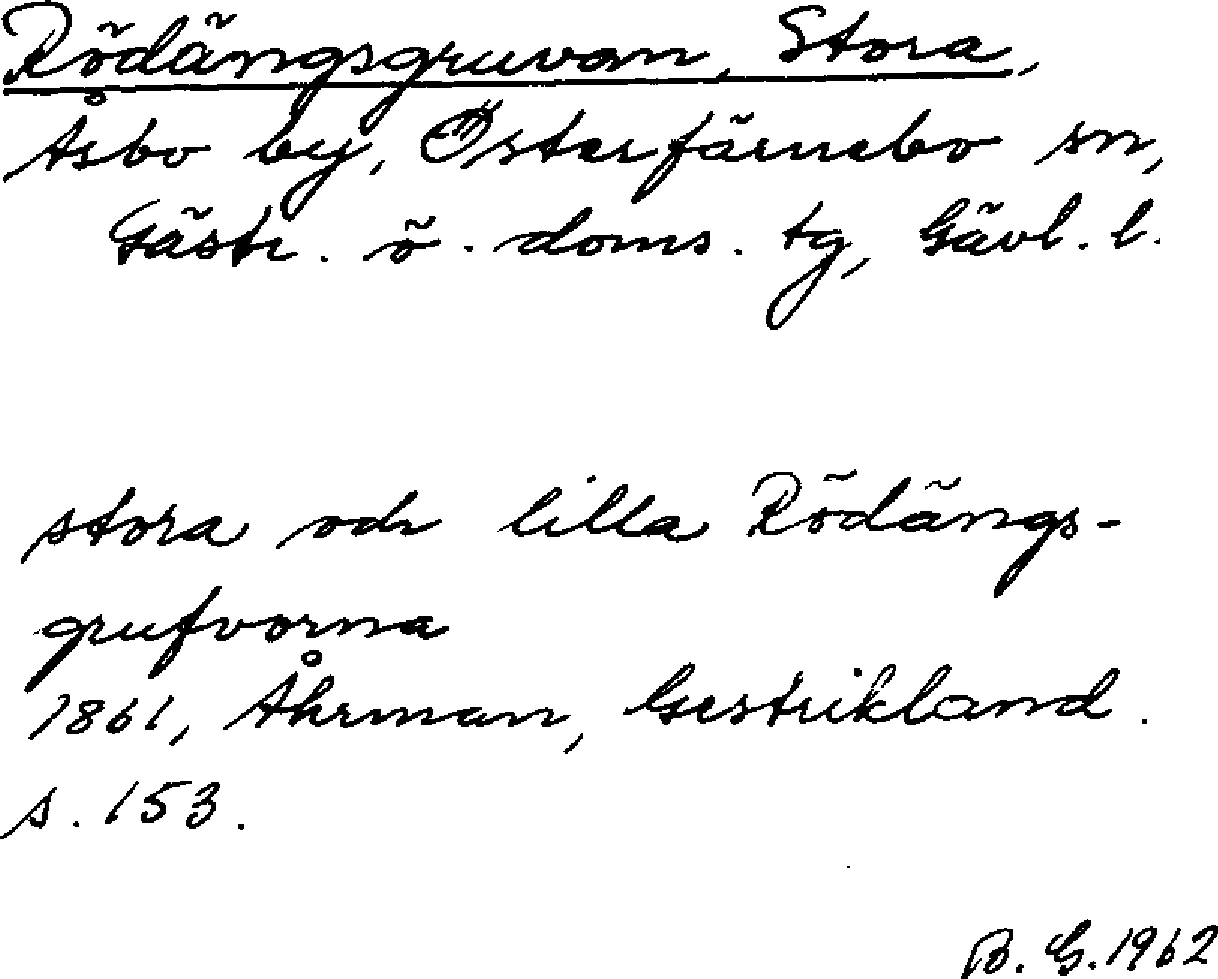 Rödängsgruvan, Stora,
Åsbo by, Österfärnebo sn,
Gästr. ö. doms. tg, Gävl. l.
stora och lilla Rödängs-
grufvorna
1861, Åhrman, Gestrikland.
s. 153.
B. G. 1962